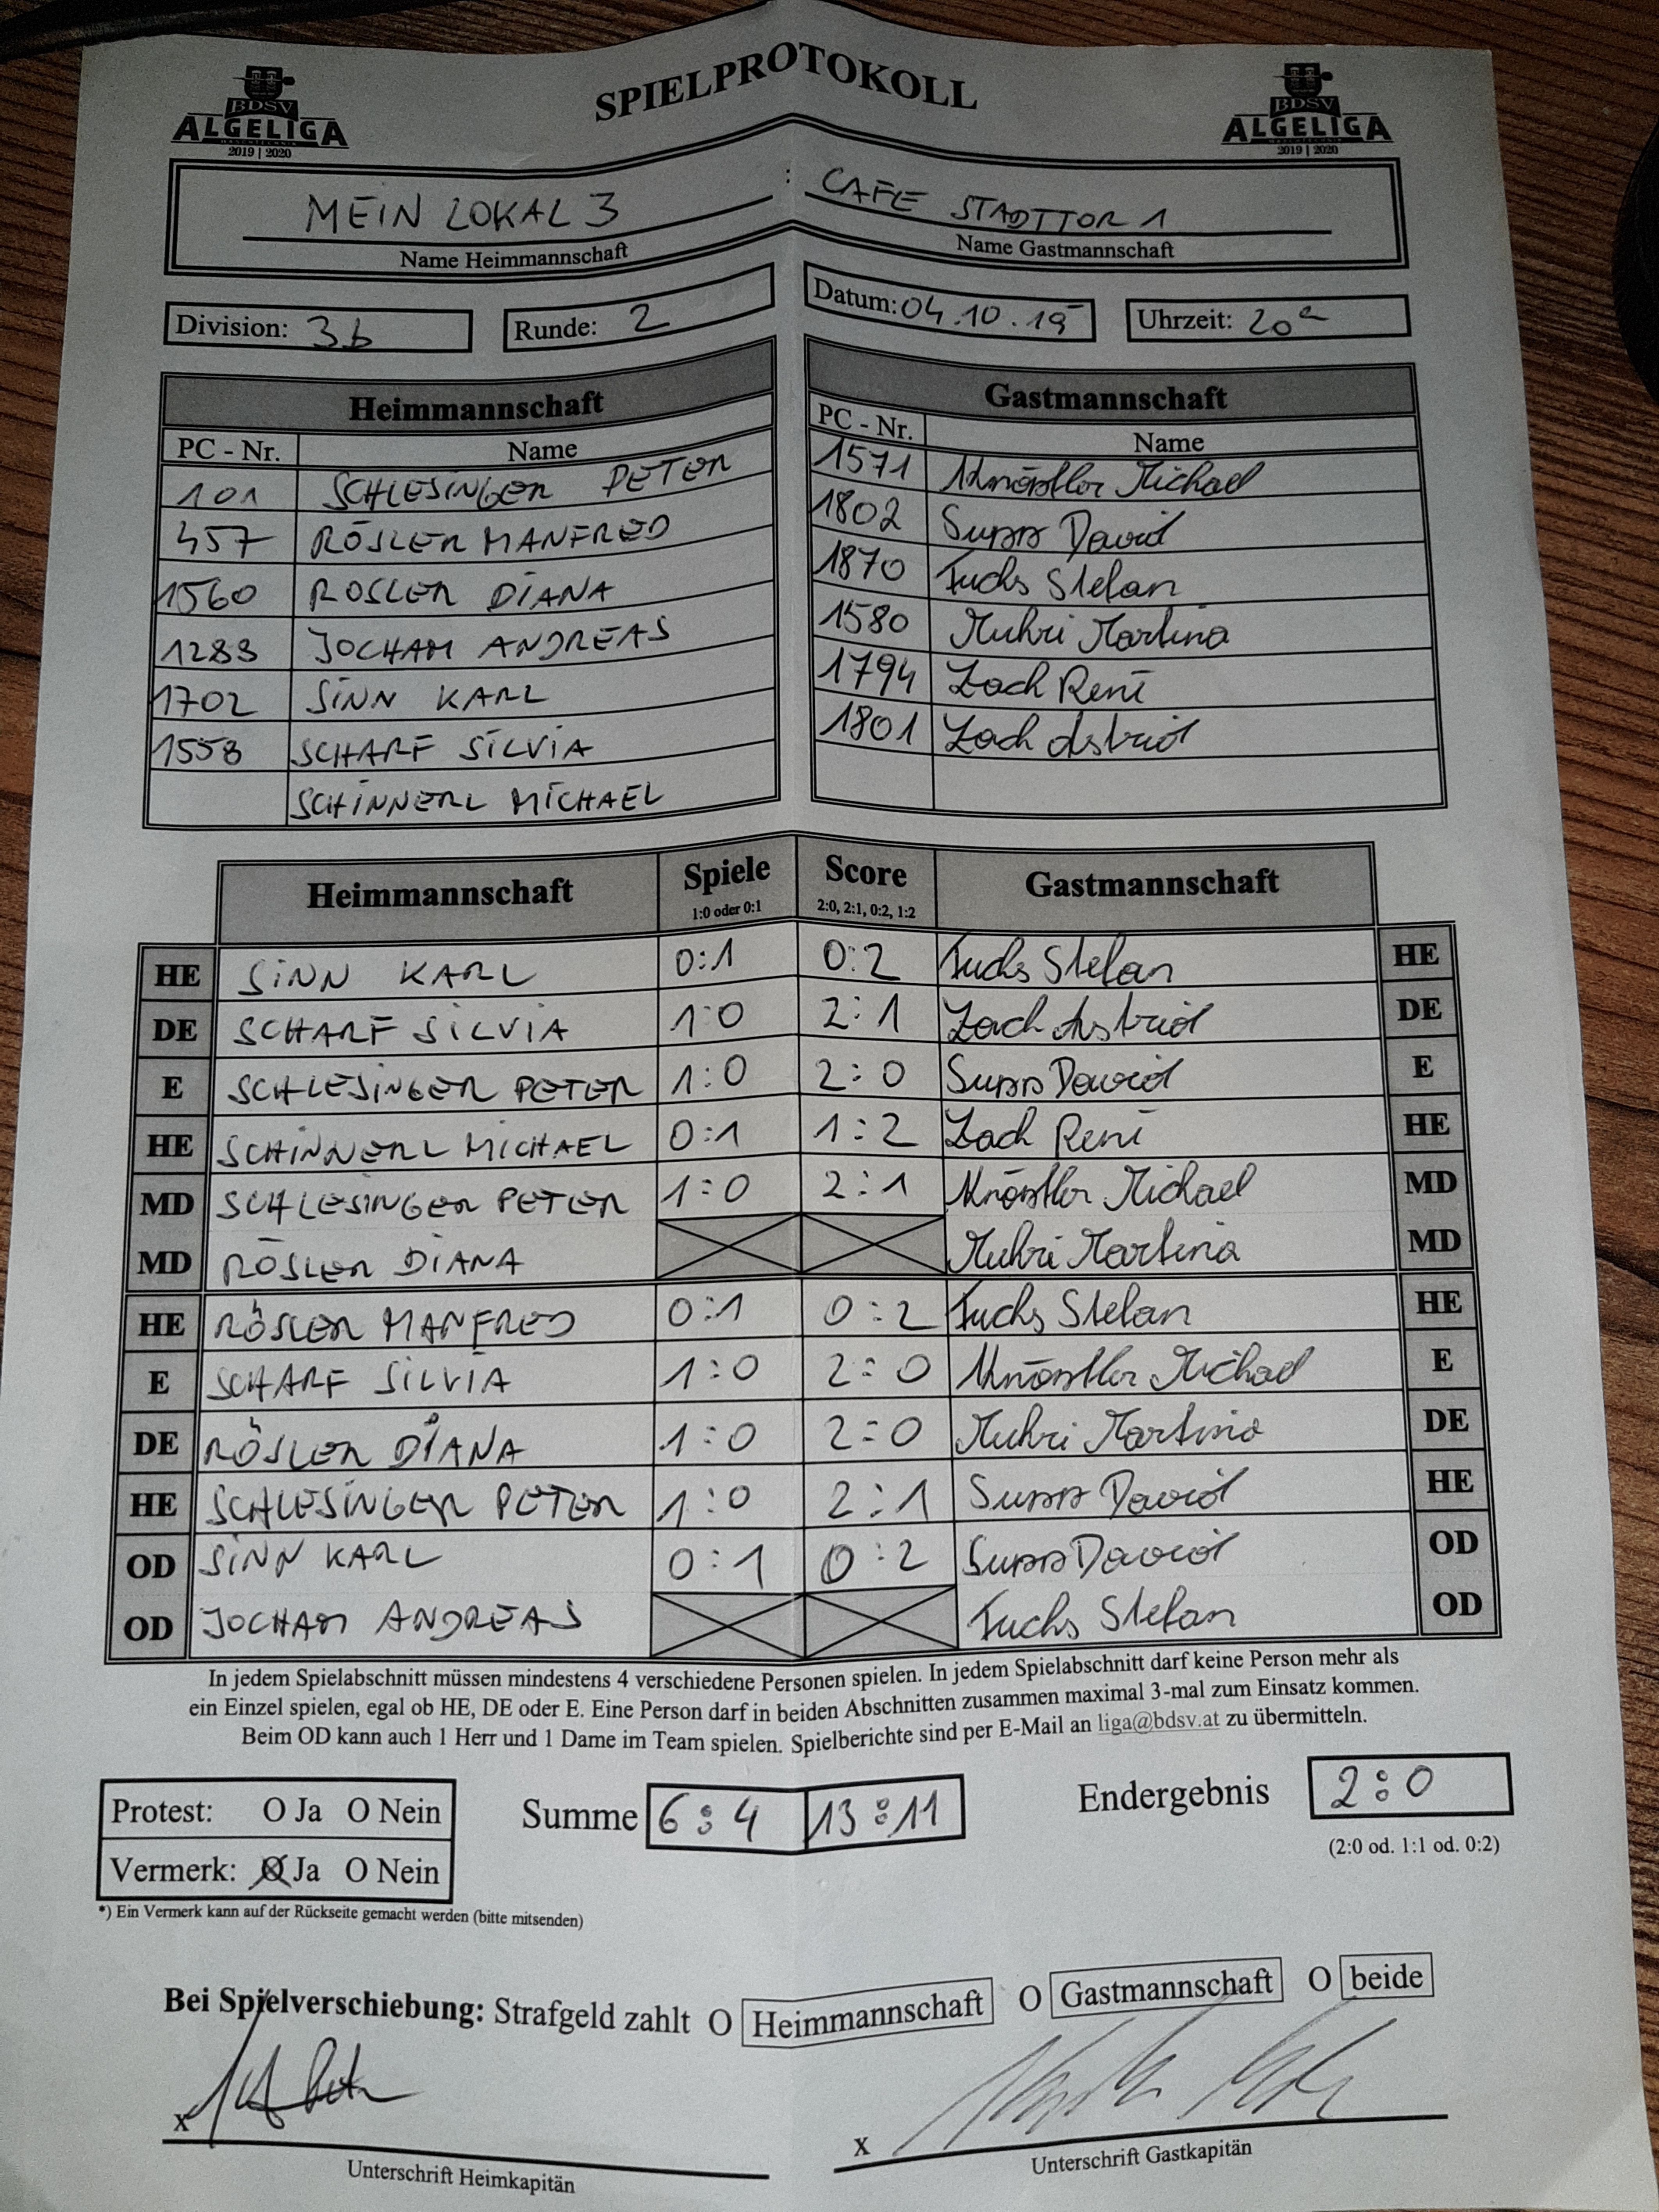 SPIELPROTOKOLL
BDSV
ALGELIGA
2019 | 2020
BDSV
ALGELIGA
2019 | 2020
MEIN LOKAL 3 : CAFE STADTTOR 1
Name Heimmannschaft Name Gastmannschaft
Division: 3b Runde: 2 Datum: 04.10.19 Uhrzeit: 20
Heimmannschaft
PC - Nr. Name
101 SCHLESINGER PETER
457 RÖSLER MANFRED
1560 RÖSLER DIANA
1288 JOCHAM ANDREAS
1702 SINN KARL
1558 SCHARF SILVIA
SCHINNERL MICHAEL
Gastmannschaft
PC - Nr. Name
1571 Michael
1802 David
1870 Fuchs Stefan
1580 Muhri Martina
1794 Zach René
1801 Zach Astrid
Heimmannschaft Spiele Score Gastmannschaft
1:0 oder 0:1 2:0, 2:1, 0:2, 1:2
HE SINN KARL 0:1 0:2 Fuchs Stefan HE
DE SCHARF SILVIA 1:0 2:1 Zach Astrid DE
E SCHLESINGER PETER 1:0 2:0 David E
HE SCHINNERL MICHAEL 0:1 1:2 Zach René HE
MD SCHLESINGER PETER 1:0 2:1 Michael MD
MD RÖSLER DIANA Muhri Martina MD
HE RÖSLER MANFRED 0:1 0:2 Fuchs Stefan HE
E SCHARF SILVIA 1:0 2:0 Michael E
DE RÖSLER DIANA 1:0 2:0 Muhri Martina DE
HE SCHLESINGER PETER 1:0 2:1 David HE
OD SINN KARL 0:1 0:2 David OD
OD JOCHAM ANDREAS Fuchs Stefan OD
In jedem Spielabschnitt müssen mindestens 4 verschiedene Personen spielen. In jedem Spielabschnitt darf keine Person mehr als
ein Einzel spielen, egal ob HE, DE oder E. Eine Person darf in beiden Abschnitten zusammen maximal 3-mal zum Einsatz kommen.
Beim OD kann auch 1 Herr und 1 Dame im Team spielen. Spielberichte sind per E-Mail an liga@bdsv.at zu übermitteln.
Protest: O Ja O Nein
Vermerk: O Ja O Nein
Summe 6:4 13:11
Endergebnis 2:0
(2:0 od. 1:1 od. 0:2)
*) Ein Vermerk kann auf der Rückseite gemacht werden (bitte mitsenden)
Bei Spielverschiebung: Strafgeld zahlt O Heimmannschaft O Gastmannschaft O beide
x x
Unterschrift Heimkapitän Unterschrift Gastkapitän